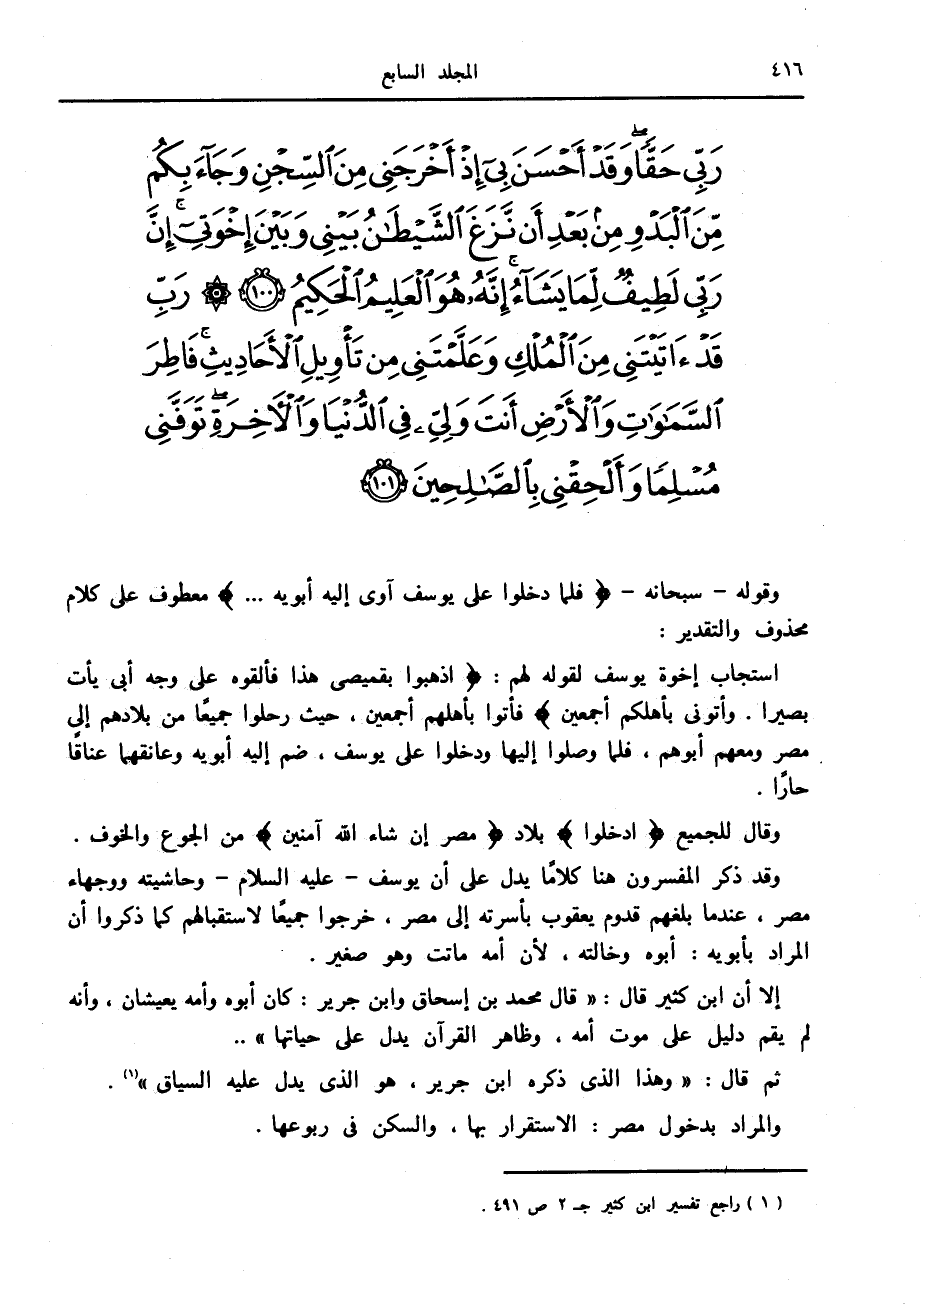 ٤١٦
المجلد السابع
رَبِّى حَقًّا ۖ وَقَدْ أَحْسَنَ بِىٓ إِذْ أَخْرَجَنِى مِنَ ٱلسِّجْنِ وَجَآءَ بِكُم
مِّنَ ٱلْبَدْوِ مِنۢ بَعْدِ أَن نَّزَغَ ٱلشَّيْطَٰنُ بَيْنِى وَبَيْنَ إِخْوَتِىٓ ۚ إِنَّ
رَبِّى لَطِيفٌ لِّمَا يَشَآءُ ۚ إِنَّهُۥ هُوَ ٱلْعَلِيمُ ٱلْحَكِيمُ ١٠٠ ۞ رَبِّ
قَدْ ءَاتَيْتَنِى مِنَ ٱلْمُلْكِ وَعَلَّمْتَنِى مِن تَأْوِيلِ ٱلْأَحَادِيثِ ۚ فَاطِرَ
ٱلسَّمَٰوَٰتِ وَٱلْأَرْضِ أَنتَ وَلِىِّۦ فِى ٱلدُّنْيَا وَٱلْءَاخِرَةِ ۖ تَوَفَّنِى
مُسْلِمًا وَأَلْحِقْنِى بِٱلصَّٰلِحِينَ ١٠١
وقوله - سبحانه - ﴿ فلما دخلوا على يوسف آوى إليه أبويه ... ﴾ معطوف على كلام
محذوف والتقدير :
استجاب إخوة يوسف لقوله لهم : ﴿ اذهبوا بقميصى هذا فألقوه على وجه أبى يأت
بصيرا . وأتونى بأهلكم أجمعين ﴾ فأتوا بأهلهم أجمعين ، حيث رحلوا جميعًا من بلادهم إلى
مصر ومعهم أبوهم ، فلما وصلوا إليها ودخلوا على يوسف ، ضم إليه أبويه وعانقهما عناقًا
حارًا .
وقال للجميع ﴿ ادخلوا ﴾ بلاد ﴿ مصر إن شاء الله آمنين ﴾ من الجوع والخوف .
وقد ذكر المفسرون هنا كلامًا يدل على أن يوسف - عليه السلام - وحاشيته ووجهاء
مصر ، عندما بلغهم قدوم يعقوب بأسرته إلى مصر ، خرجوا جميعًا لاستقبالهم كما ذكروا أن
المراد بأبويه : أبوه وخالته ، لأن أمه ماتت وهو صغير .
إلا أن ابن كثير قال : « قال محمد بن إسحاق وابن جرير : كان أبوه وأمه يعيشان ، وأنه
لم يقم دليل على موت أمه ، وظاهر القرآن يدل على حياتها » ..
ثم قال : « وهذا الذى ذكره ابن جرير ، هو الذى يدل عليه السياق »(١) .
والمراد بدخول مصر : الاستقرار بها ، والسكن فى ربوعها .
( ١ ) راجع تفسير ابن كثير جـ ٢ ص ٤٩١ .